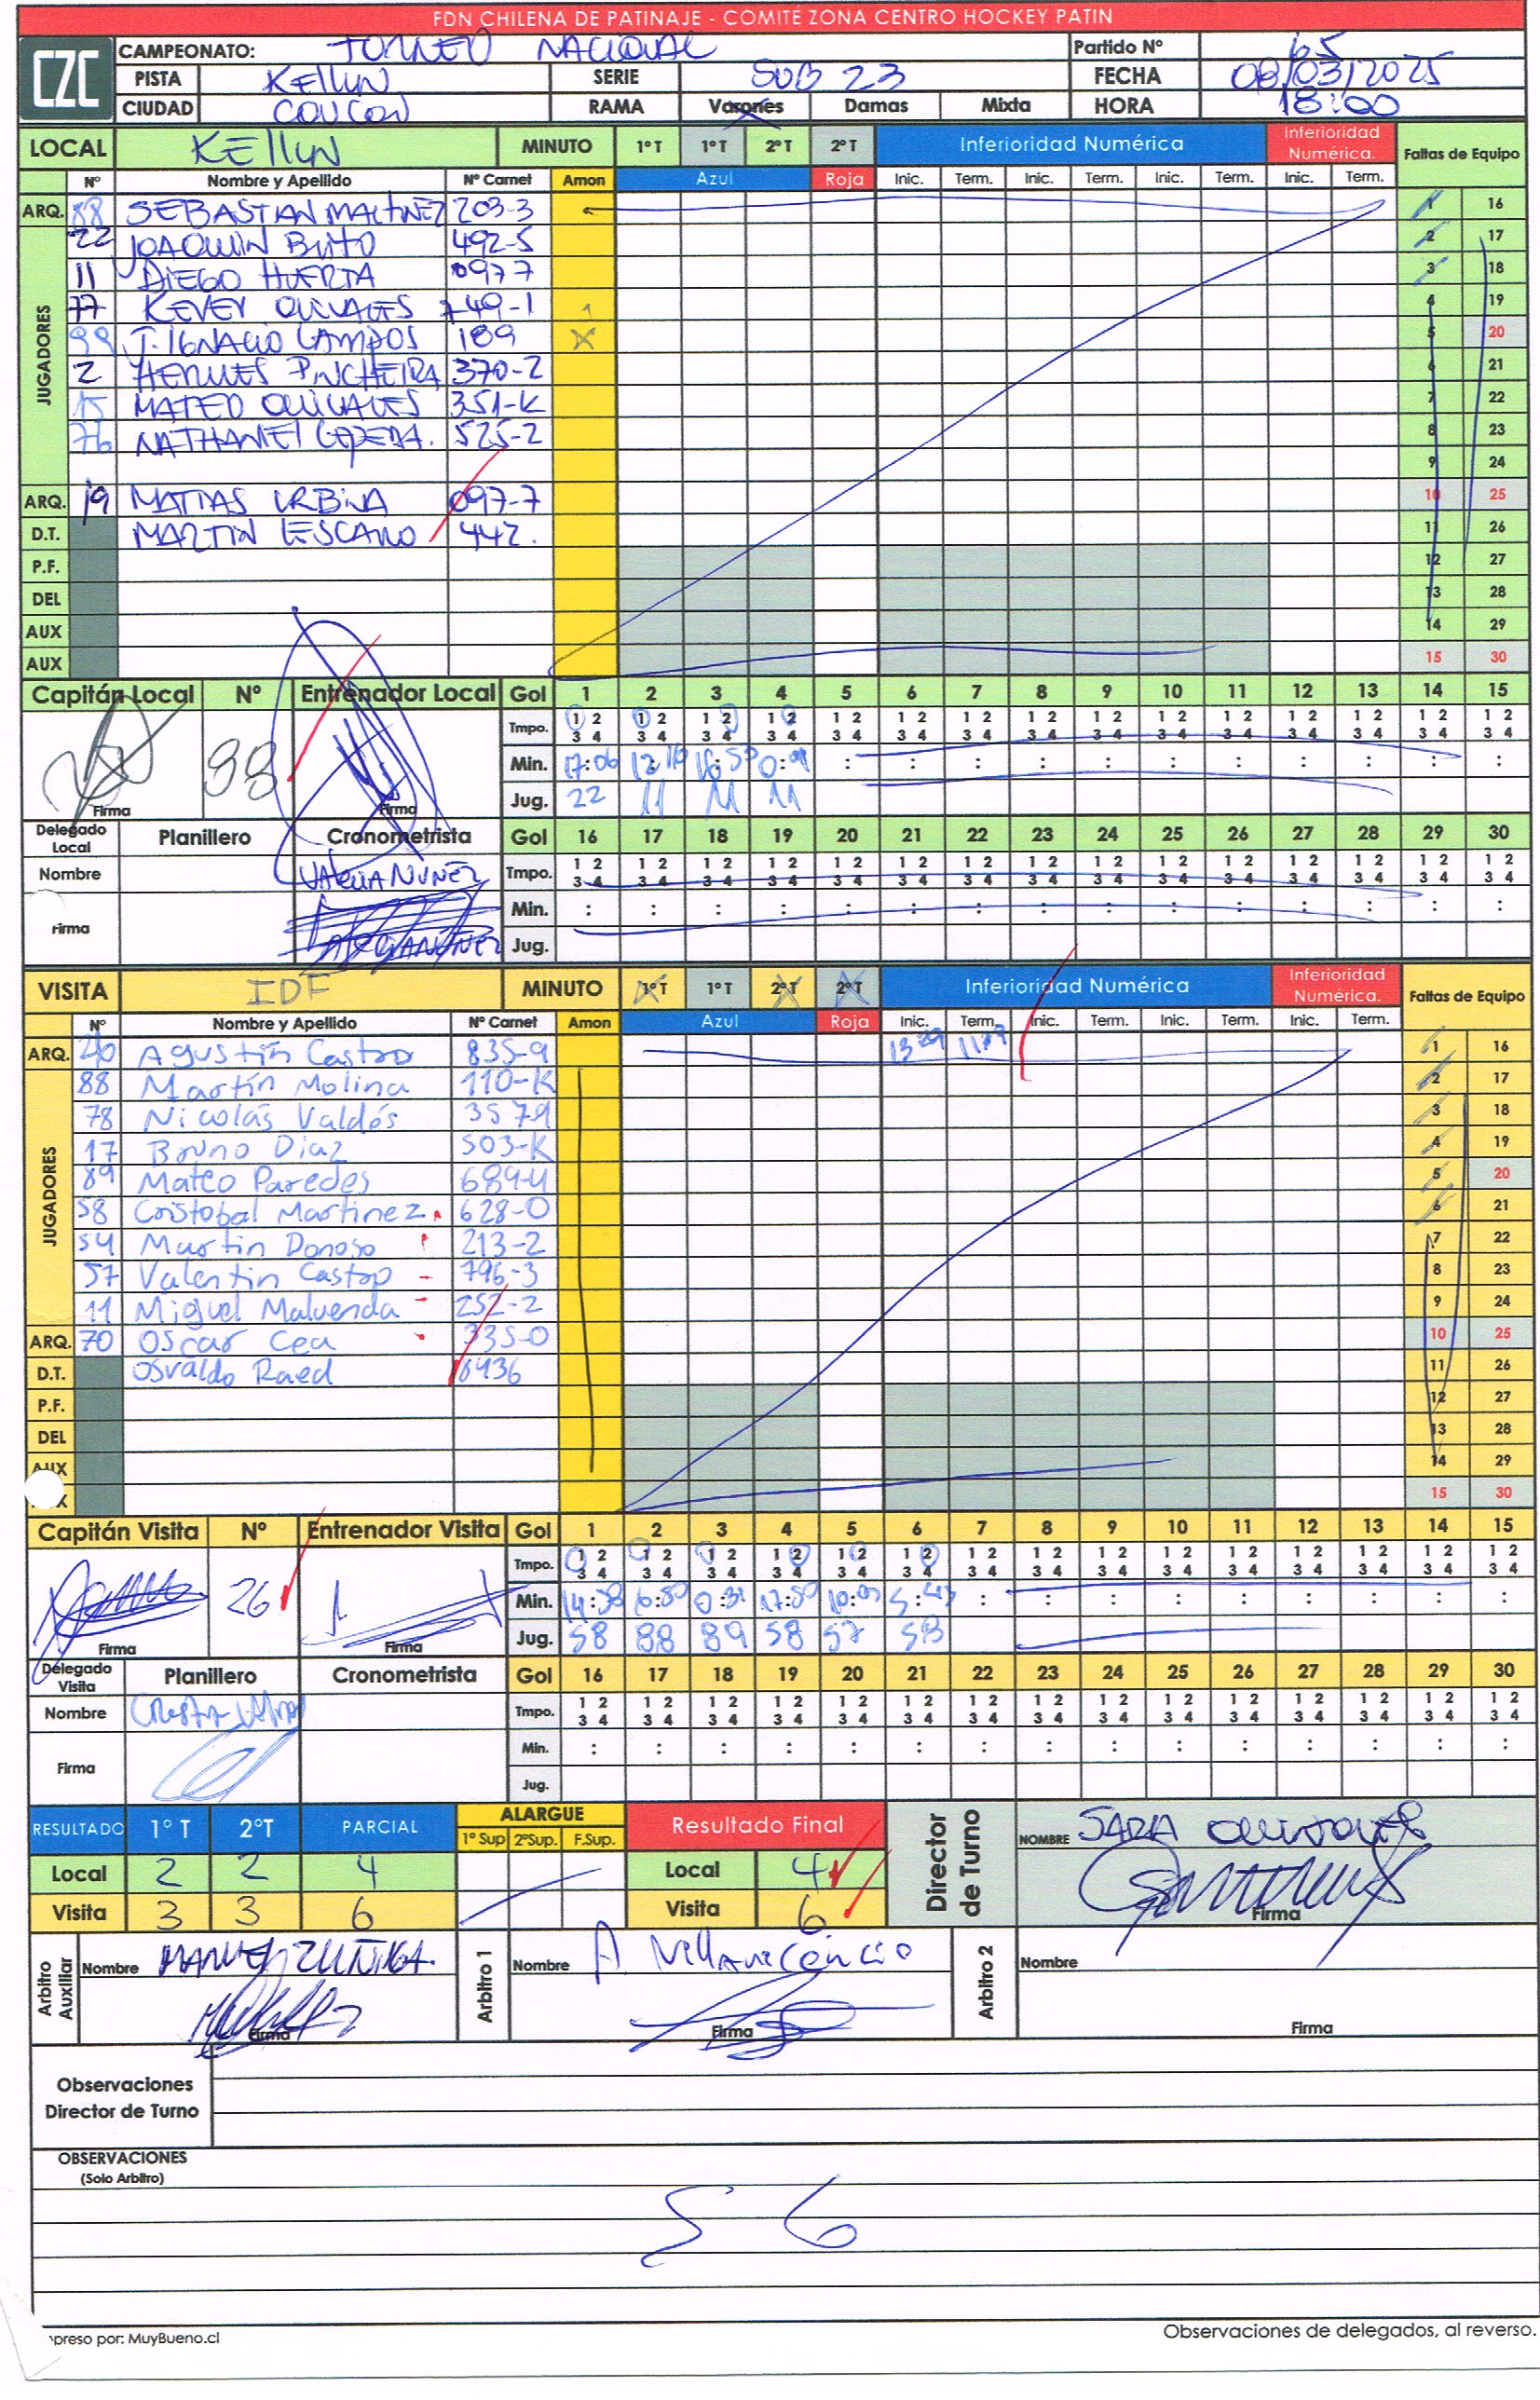 FDN CHILENA DE PATINAJE - COMITÉ ZONA CENTRO HOCKEY PATIN
CZC
CAMPEONATO: TORNEO NACIONAL Partido Nº 65
PISTA KELLUN SERIE SUB 23 FECHA 08/03/2025
CIUDAD CONCON RAMA Varones Damas Mixta HORA 18:00
LOCAL KELLUN MINUTO 1º T 1º T 2º T 2º T Inferioridad Numérica Inferioridad Numérica. Faltas de Equipo
Nº Nombre y Apellido Nº Carnet Amon Azul Roja Inic. Term. Inic. Term. Inic. Term. Inic. Term.
ARQ. 88 SEBASTIAN MARTINEZ 203-3 1 16
JUGADORES
22 JOAQUIN BRITO 492-5 2 17
11 DIEGO HUERTA 0977 3 18
77 KEVEY OLIVARES 749-1 4 19
99 J. IGNACIO CAMPOS 189 X 5 20
2 HERMES PINCHEIRA 370-2 6 21
15 MATEO OLIVARES 351-K 7 22
76 NATHANIEL CEPEDA. 525-2 8 23
9 24
ARQ. 19 MATIAS URBINA 097-7 10 25
D.T. MARTIN LESCANO 442. 11 26
P.F. 12 27
DEL 13 28
AUX 14 29
AUX 15 30
Capitán Local Nº Entrenador Local Gol 1 2 3 4 5 6 7 8 9 10 11 12 13 14 15
Tmpo. 1 2 3 4 1 2 3 4 1 2 3 4 1 2 3 4 1 2 3 4 1 2 3 4 1 2 3 4 1 2 3 4 1 2 3 4 1 2 3 4 1 2 3 4 1 2 3 4 1 2 3 4 1 2 3 4 1 2 3 4
88 Min. 17:06 12:16 16:55 0:09 : : : : : : : : : : :
Firma Firma Jug. 22 11 11 11
Delegado Local Planillero Cronometrista Gol 16 17 18 19 20 21 22 23 24 25 26 27 28 29 30
Nombre NUÑEZ Tmpo. 1 2 3 4 1 2 3 4 1 2 3 4 1 2 3 4 1 2 3 4 1 2 3 4 1 2 3 4 1 2 3 4 1 2 3 4 1 2 3 4 1 2 3 4 1 2 3 4 1 2 3 4 1 2 3 4 1 2 3 4
Firma Min. : : : : : : : : : : : : : : :
Jug.
VISITA IDF MINUTO 1º T 1º T 2º T 2º T Inferioridad Numérica Inferioridad Numérica. Faltas de Equipo
Nº Nombre y Apellido Nº Carnet Amon Azul Roja Inic. Term. Inic. Term. Inic. Term. Inic. Term.
ARQ. Agustín Castro 835-9 13:29 11:29 1 16
JUGADORES
88 Martín Molina 110-K 2 17
78 Nicolás Valdés 3579 3 18
17 Bruno Diaz 503-K 4 19
89 Mateo Paredes 689-4 5 20
58 Cristobal Martinez 628-0 6 21
54 Martin Donoso 213-2 7 22
57 Valentin Castro 796-3 8 23
11 Miguel Maluenda 252-2 9 24
ARQ. 70 Oscar Cea 335-0 10 25
D.T. Osvaldo Raed 6436 11 26
P.F. 12 27
DEL 13 28
AUX 14 29
15 30
Capitán Visita Nº Entrenador Visita Gol 1 2 3 4 5 6 7 8 9 10 11 12 13 14 15
Tmpo. 1 2 3 4 1 2 3 4 1 2 3 4 1 2 3 4 1 2 3 4 1 2 3 4 1 2 3 4 1 2 3 4 1 2 3 4 1 2 3 4 1 2 3 4 1 2 3 4 1 2 3 4 1 2 3 4 1 2 3 4
26 Min. : : : : : : : : :
Firma Firma Jug. 58 88 89 58 57 58
Delegado Visita Planillero Cronometrista Gol 16 17 18 19 20 21 22 23 24 25 26 27 28 29 30
Nombre Tmpo. 1 2 3 4 1 2 3 4 1 2 3 4 1 2 3 4 1 2 3 4 1 2 3 4 1 2 3 4 1 2 3 4 1 2 3 4 1 2 3 4 1 2 3 4 1 2 3 4 1 2 3 4 1 2 3 4 1 2 3 4
Firma Min. : : : : : : : : : : : : : : :
Jug.
RESULTADO 1º T 2ºT PARCIAL ALARGUE 1º Sup 2ºSup. F.Sup. Resultado Final Director de Turno NOMBRE SARA
Local 2 2 4 Local 4
Visita 3 3 6 Visita 6 Firma
Arbitro Auxiliar Nombre MANUEL ZUÑIGA. Arbitro 1 Nombre A Villavicencio Arbitro 2 Nombre
Firma Firma Firma
Observaciones
Director de Turno
OBSERVACIONES
(Solo Arbitro)
preso por: MuyBueno.cl
Observaciones de delegados, al reverso.